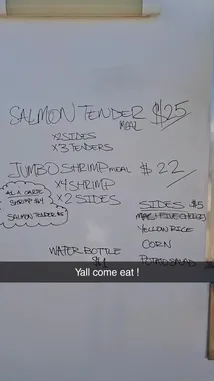 SALMON TENDER $25
MEAL
x2 SIDES
x3 TENDERS
JUMBO SHRIMP MEAL $22
x4 SHRIMP
x2 SIDES
AL A CARTE
SHRIMP $4
SALMON TENDER $6
SIDES $5
MAC + FIVE CHEESES
YELLOW RICE
CORN
POTATO SALAD
WATER BOTTLE
$1
Yall come eat !